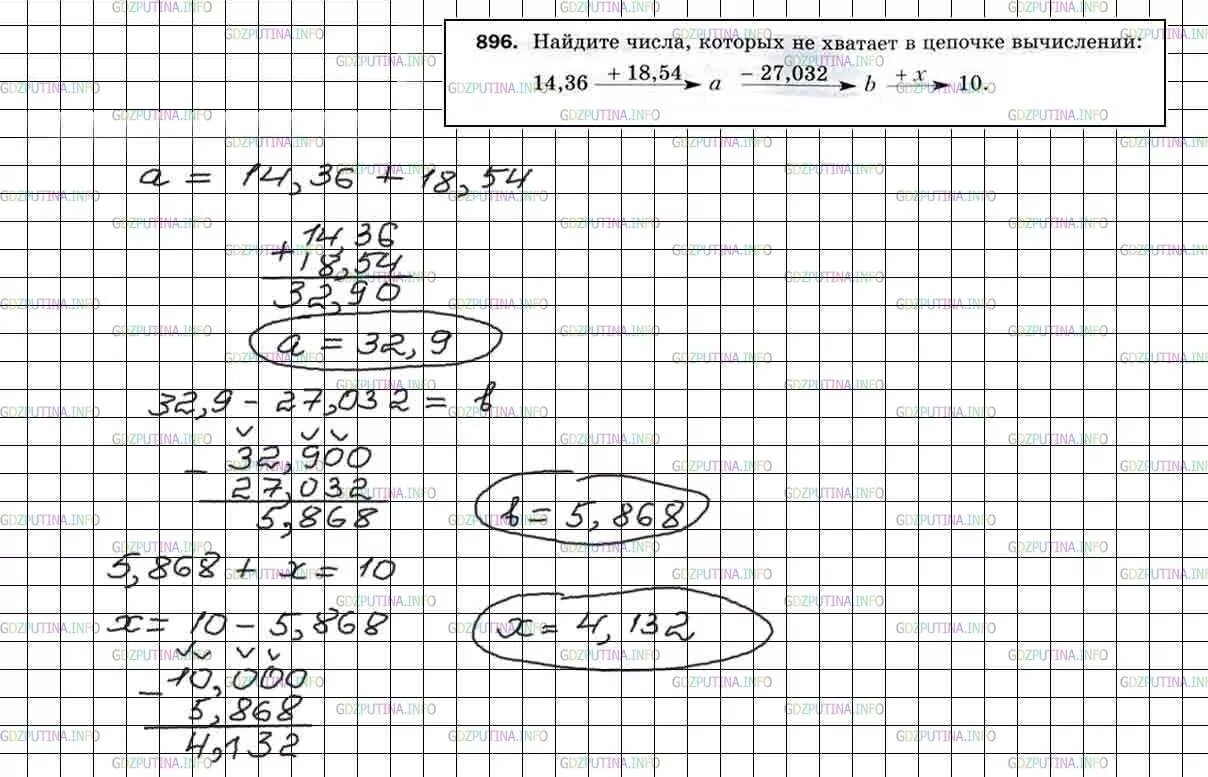 896. Найдите числа, которых не хватает в цепочке вычислений:
14,36 + 18,54 a − 27,032 b + x 10.
a = 14,36 + 18,54
+ 14,36
18,54
32,90
a = 32,9
32,9 − 27,032 = b
− 32,900
27,032
5,868
b = 5,868
5,868 + x = 10
x = 10 − 5,868
x = 4,132
− 10,000
5,868
4,132
GDZPUTINA.INFO